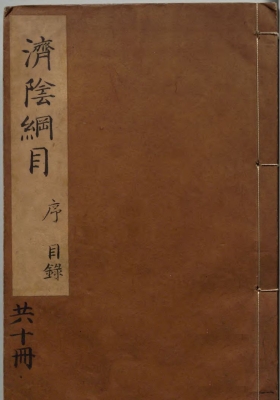 濟陰綱目
序
目錄
共十冊